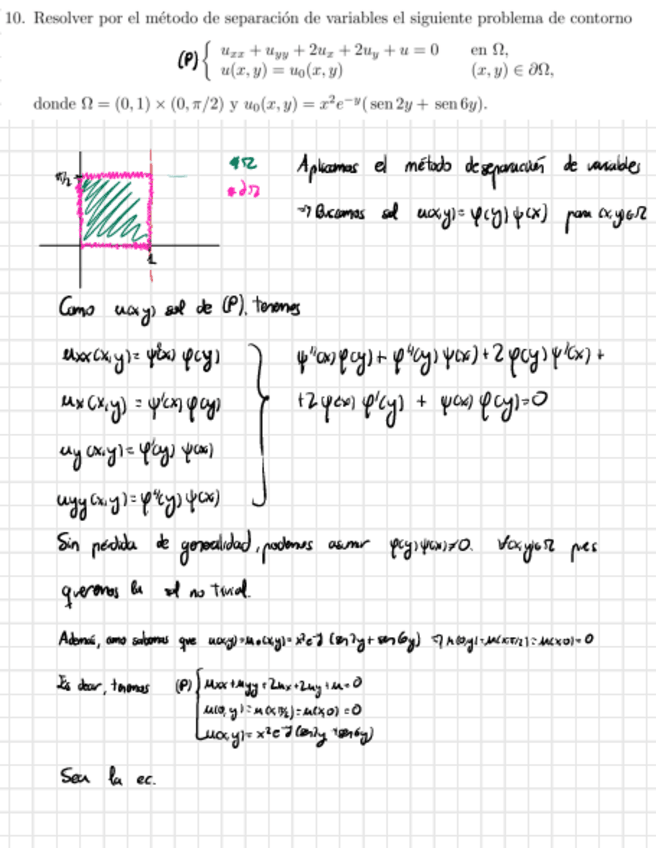 10. Resolver por el método de separación de variables el siguiente problema de contorno
(P) { u_xx + u_yy + 2u_x + 2u_y + u = 0 en Ω,
u(x, y) = u_0(x, y) (x, y) ∈ ∂Ω,
donde Ω = (0, 1) × (0, π/2) y u_0(x, y) = x²e^{-y}(sen 2y + sen 6y).
π/2
1
Ω
∂Ω
Aplicamos el método de separación de variables
→ Buscamos sol u(x,y)= φ(y) ψ(x) para (x,y)∈Ω
Como u(x,y) sol de (P), tenemos
uxx(x,y)= ψ''(x) φ(y)
ux(x,y) = ψ'(x) φ(y)
uy(x,y)= φ'(y) ψ(x)
uyy(x,y)= φ''(y) ψ(x)
ψ''(x) φ(y) + φ''(y) ψ(x) + 2 φ(y) ψ'(x) +
+2 ψ(x) φ'(y) + ψ(x) φ(y)=0
Sin pérdida de generalidad, podemos asumir φ(y) ψ(x)≠0. ∀(x,y)∈Ω pues
queremos la sol no trivial.
Además, como sabemos que u(x,y)=u_0(x,y)= x²e^{-y} (sen2y + sen6y) ⇒ u(0,y)=u(x,π/2)=u(x,0)=0
Es decir, tenemos (P) { uxx + uyy + 2ux + 2uy + u = 0
u(0, y) = u(x,π/2) = u(x,0) = 0
u(x,y)= x²e^{-y} (sen2y + sen6y)
Sea la ec.